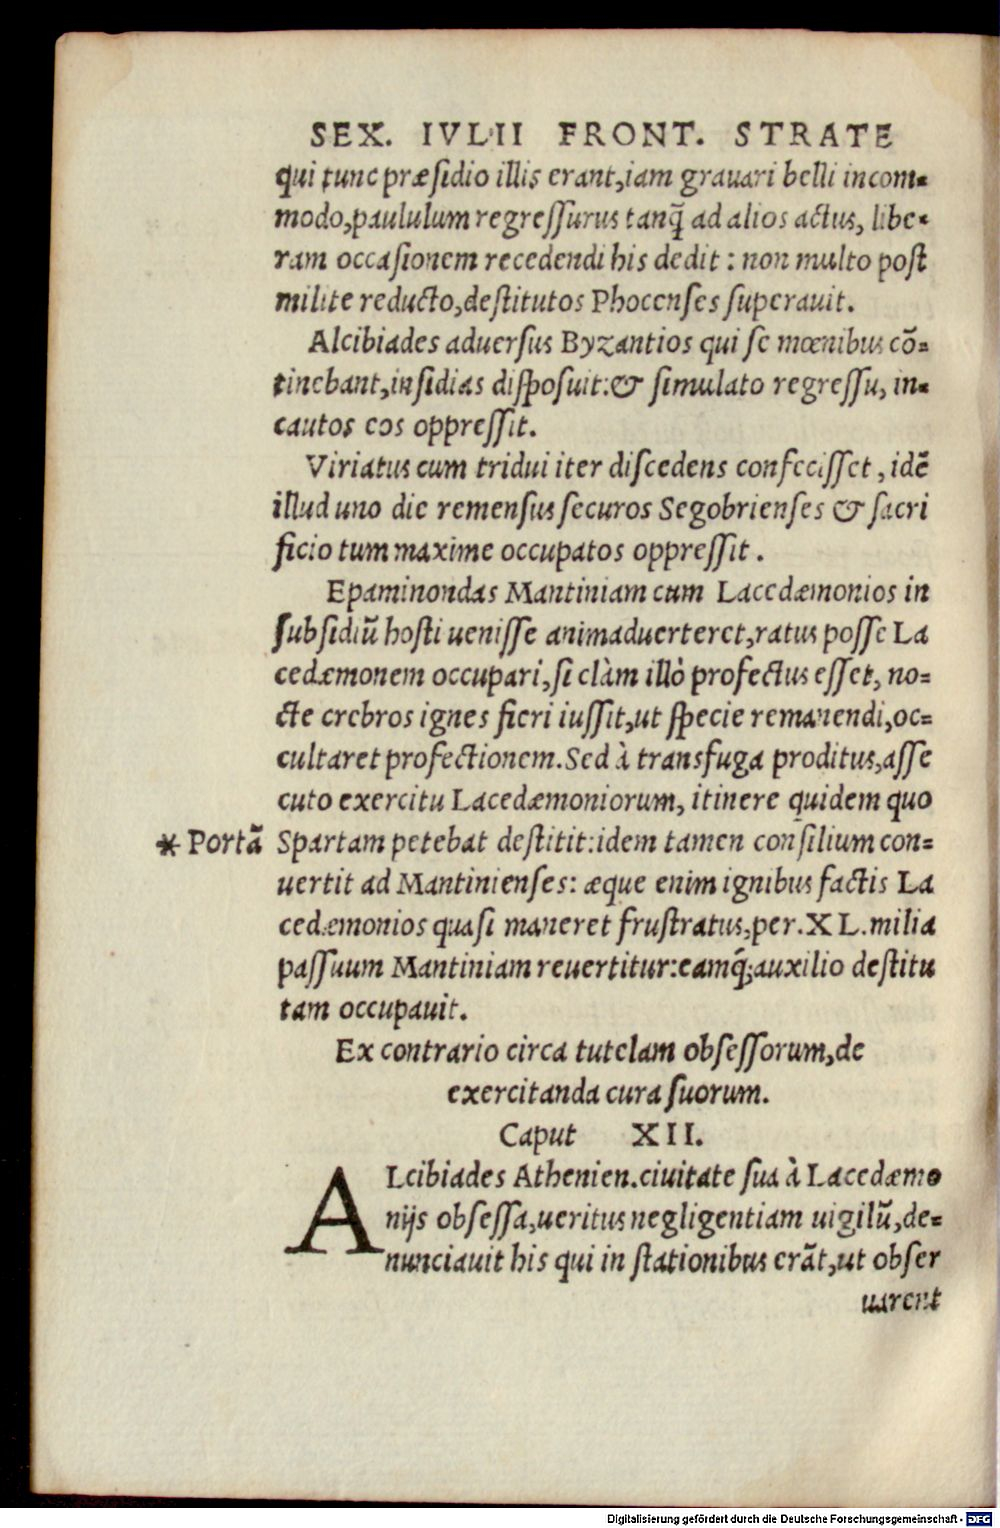 SEX. IVLII FRONT. STRATE
qui tunc præsidio illis erant, iam grauari belli incom-
modo, paululum regressurus tanq̃ ad alios actus, libe-
ram occasionem recedendi his dedit: non multo post
milite reducto, destitutos Phocenses superauit.
Alcibiades aduersus Byzantios qui se mœnibus cõ-
tinebant, insidias disposuit: & simulato regressu, in-
cautos eos oppressit.
Viriatus cum tridui iter discedens confecisset, idẽ
illud uno die remensus securos Segobrienses & sacri
ficio tum maxime occupatos oppressit.
Epaminondas Mantiniam cum Lacedæmonios in
subsidiũ hosti uenisse animaduerteret, ratus posse La
cedæmonem occupari, si clàm illò profectus esset, no-
cte crebros ignes fieri iussit, ut specie remanendi, oc-
cultaret profectionem. Sed à transfuga proditus, asse
cuto exercitu Lacedæmoniorum, itinere quidem quo
* Portã Spartam petebat destitit: idem tamen consilium con-
uertit ad Mantinienses: æque enim ignibus factis La
cedæmonios quasi maneret frustratus, per. XL. milia
passuum Mantiniam reuertitur: eamq́; auxilio destitu
tam occupauit.
Ex contrario circa tutelam obsessorum, de
exercitanda cura suorum.
Caput XII.
ALcibiades Athenien. ciuitate sua à Lacedæmo
nijs obsessa, ueritus negligentiam uigilũ, de-
nunciauit his qui in stationibus erãt, ut obser
uarent
Digitalisierung gefördert durch die Deutsche Forschungsgemeinschaft - DFG